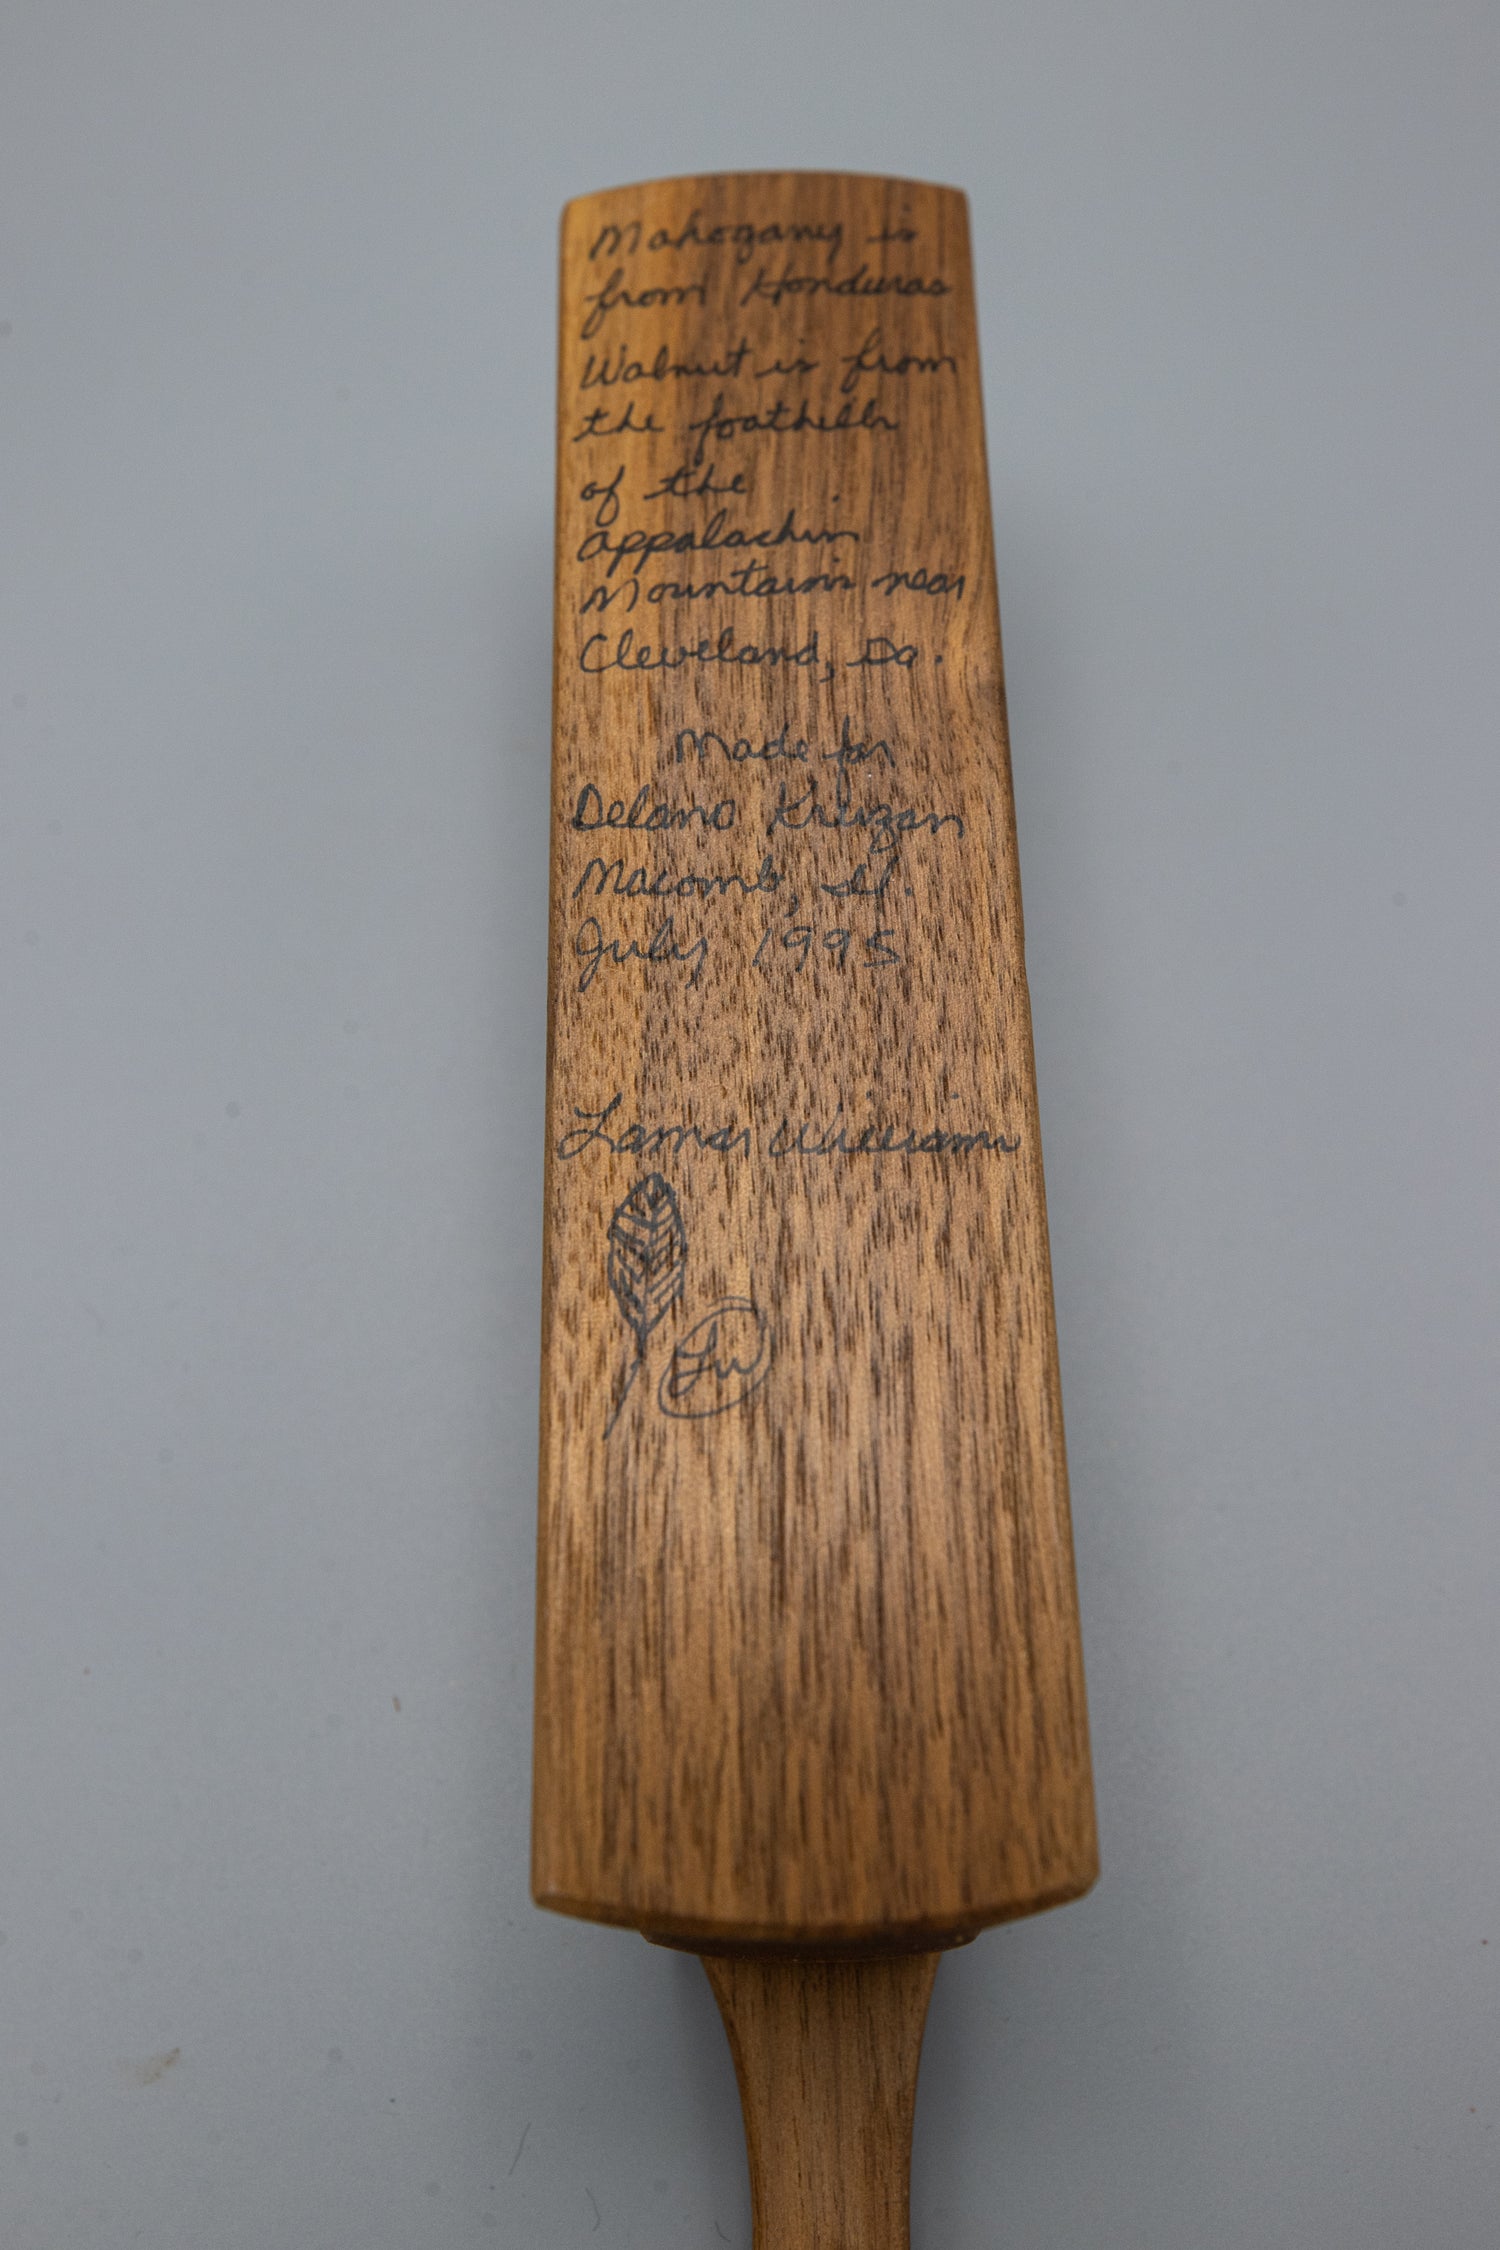 Mahogany is
from Honduras
Walnut is from
the foothills
of the
Appalachin
Mountains near
Cleveland, Ga.
Made for
Delano Kruzan
Macomb, Il.
July 1995
Lamar Williams
LW